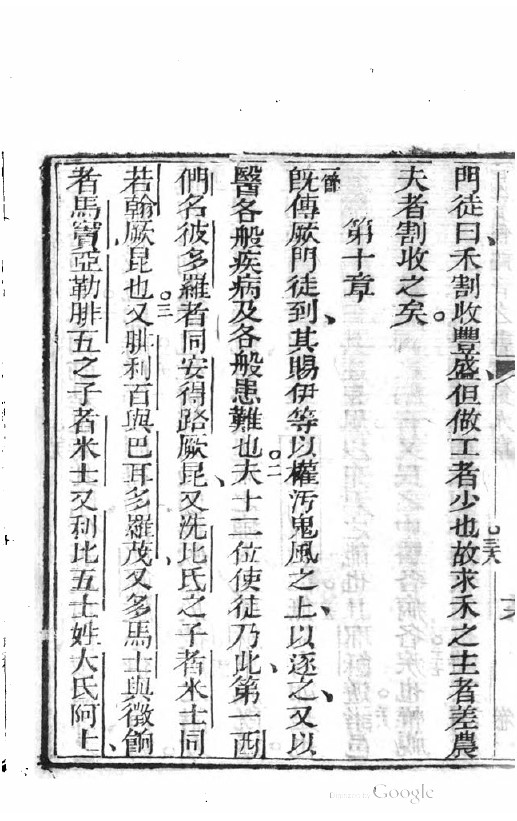 門徒曰、禾割收豐盛、但做工者少也。三八故求禾之主者差農
夫者割收之矣。
第十章
一節既傳厥門徒到、其賜伊等以權汚鬼風之上、以逐之、又以
醫各般疾病及各般患難也。二夫十二位使徒乃此、第一西
們名彼多羅者同安得路厥昆、又洗比氏之子者米士同
若翰厥昆也。三又腓利百與巴耳多羅茂、又多馬士與徵餉
者馬竇亞勒腓五之子者米士又利比五士姓大氏阿士、
Digitized by Google